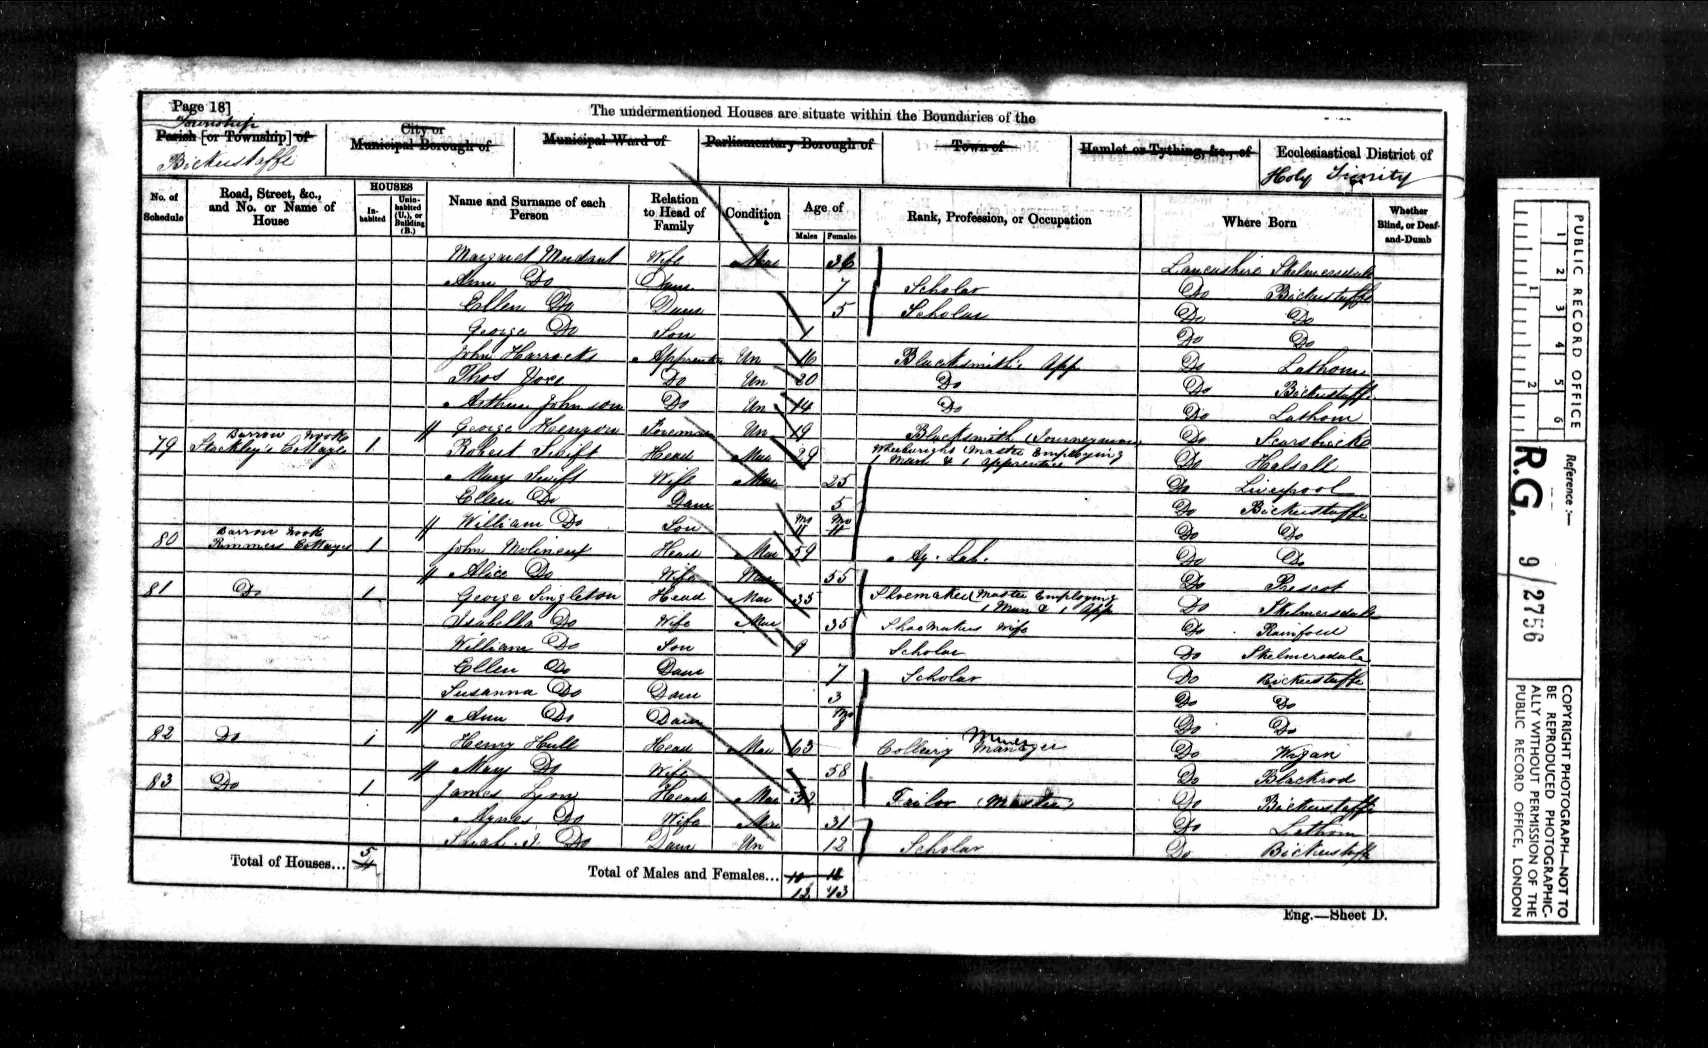 Page 18]
The undermentioned Houses are situate within the Boundaries of the
Township
Parish [or Township] of
City or
Municipal Borough of
Municipal Ward of
Parliamentary Borough of
Town of
Hamlet or Tything, &c., of
Ecclesiastical District of
Bickerstaffe
Holy Trinity
No. of Schedule
Road, Street, &c., and No. or Name of House
HOUSES
In-habited
Unin-habited (U.), or Building (B.)
Name and Surname of each Person
Relation to Head of Family
Condition
Age of
Males
Females
Rank, Profession, or Occupation
Where Born
Whether Blind, or Deaf-and-Dumb
Margaret Wife Mar 36 Lancashire Skelmersdale
Ann Do Daur 7 Scholar Do Bickerstaffe
Ellen Do Daur 5 Scholar Do Do
George Do Son 1 Do Do
John Horrocks Apprentice Un 16 Blacksmith App Do Lathom
Thos Do Un 20 Do Do Bickerstaffe
Arthur Johnson Do Un 14 Do Do Lathom
George Foreman Un 19 Blacksmith (Journeyman Do Scarsbrick
79 Barrow Nook Stackley's Cottages 1 Robert Swift Head Mar 29 Wheelwright (Master Employing 1 Man & 1 Apprentice Do Halsall
Mary Swift Wife Mar 25 Do Liverpool
Ellen Do Daur 5 Do Bickerstaffe
William Do Son Mo 4 Mo 4 Do Do
80 Barrow Nook Rimmers Cottages 1 John Molineux Head Mar 59 Ag. Lab. Do Do
Alice Do Wife Mar 55 Do Prescot
81 Do 1 George Singleton Head Mar 35 Shoemaker (Master Employing 1 Man & 1 App Do Skelmersdale
Isabella Do Wife Mar 35 Shoemakers Wife Do Rainford
William Do Son 9 Scholar Do Skelmersdale
Ellen Do Daur 7 Scholar Do Bickerstaffe
Susanna Do Daur 3 Do Do
Ann Do Daur Mo Do Do
82 Do 1 Henry Hull Head Mar 63 Colliery Manager Mines Do Wigan
Mary Do Wife 58 Do Blackrod
83 Do 1 James Lyon Head Mar 32 Tailor (Master) Do Bickerstaffe
Agnes Do Wife Mar 31 Do Lathom
Do Daur Un 12 Scholar Do Bickerstaffe
Total of Houses... 5 4
Total of Males and Females...
12 13
Eng.—Sheet D.
PUBLIC RECORD OFFICE
1 2 3 4 5 6
1 2
Reference :—
R.G. 9/2756
COPYRIGHT PHOTOGRAPH—NOT TO
BE REPRODUCED PHOTOGRAPHIC-
ALLY WITHOUT PERMISSION OF THE
PUBLIC RECORD OFFICE, LONDON